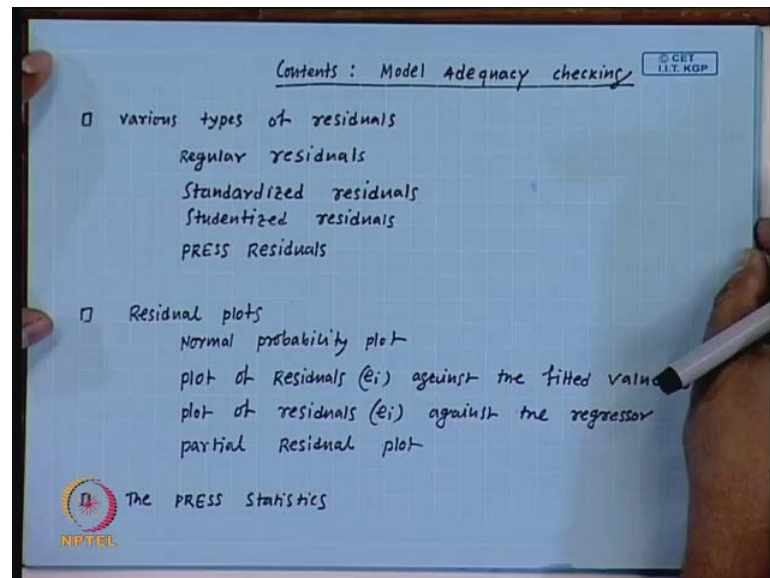 Contents : Model Adequacy checking
© CET
I.I.T. KGP
various types of residuals
Regular residuals
Standardized residuals
Studentized residuals
PRESS Residuals
Residual plots
Normal probability plot
plot of Residuals (ei) against the fitted value
plot of residuals (ei) against the regressor
partial Residual plot
The PRESS Statistics
NPTEL